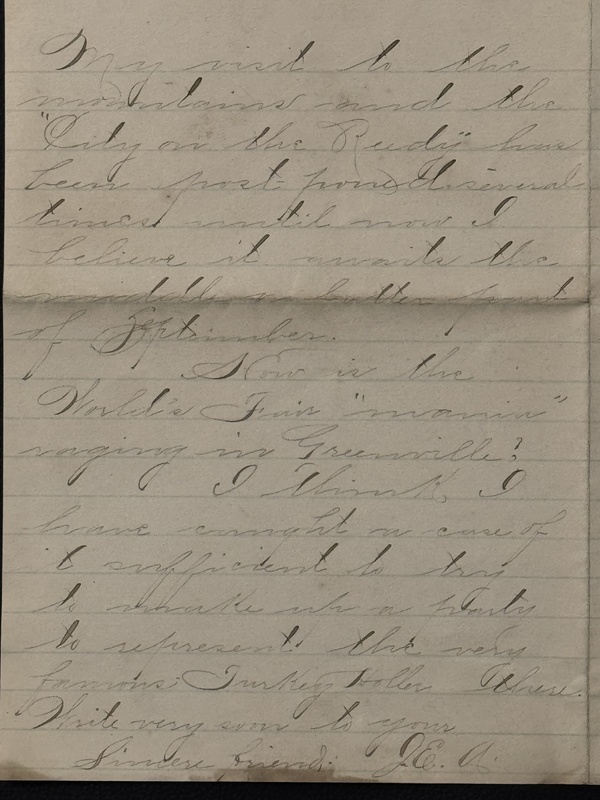 My visit to the
mountains and the
"City on the Reedy" has
been post-poned several
times until now I
believe it awaits the
middle or latter part
of September.
How is the
World's Fair "mania"
raging in Greenville?
I think, I
have caught a case of
it sufficient to try
to make up a party
to represent the very
famous Turkey Holler there.
Write very soon to your
Sincere friend. J.E. A.